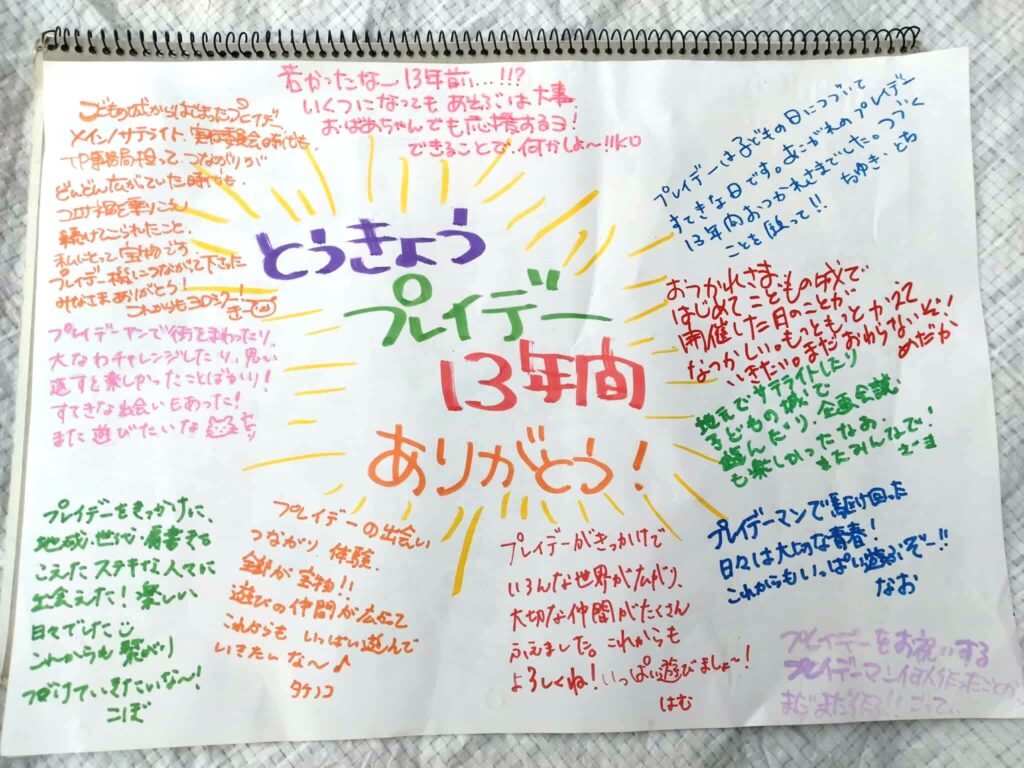 若かったな〜13年前…!!?
いくつになっても あそびは大事
おばあちゃんでも応援するヨ!
できることで、何かしよ〜!!KO
メイン/サテライト、実行委員会の時代も、
TP事務局担って、つながりが
どんどん広がていた時代も、
コロナ禍を乗りこえ
続けてこられたこと、
私にとって宝物です
プレイデー様につながって下さった
みなさまありがとう!
これからもヨロシクー!
プレイデーは子どもの日につづいて
すてきな日です。あこがれのプレイデー
13年間おつかれさまでした。つづく
ことを願って!!
ちゆき、とち
とうきょう
プレイデー
13年間
ありがとう!
プレイデーマンで街をまわったり、
大なわチャレンジしたり、思い
返すと楽しかったことばかり!
すてきな出会いもあった!
また遊びたいな
おつかれさま。
はじめてこどもの城で
開催した日のことが
なつかしい。もっともっとかえて
いきたい。まだおわらないぞ!
めだか
地元でサテライトしたり
子どもの城で
遊んだり、企画会議
も楽しかったなぁ。
またみんなで!
プレイデーをきっかけに、
地域・世代・肩書きを
こえたステキな人々に
出会えた!楽しい
日々でした
これからも繋がり
つづけていきたいな〜!
こぼ
プレイデーの出会い
つながり 体験、
全部が宝物!!
遊びの仲間が広がって
これからも いっぱい遊んで
いきたいな〜♪
タケノコ
プレイデーがきっかけで
いろんな世界が広がり、
大切な仲間がたくさん
ふえました。これからも
よろしくね!いっぱい遊びましょ〜!
はむ
プレイデーマンで駆け回った
日々は大切な青春!
これからもいっぱい遊ぶぞー!!
なお
プレイデーをお祝いする
プレイデーマン何人作ったことか
まだまだ作る!!